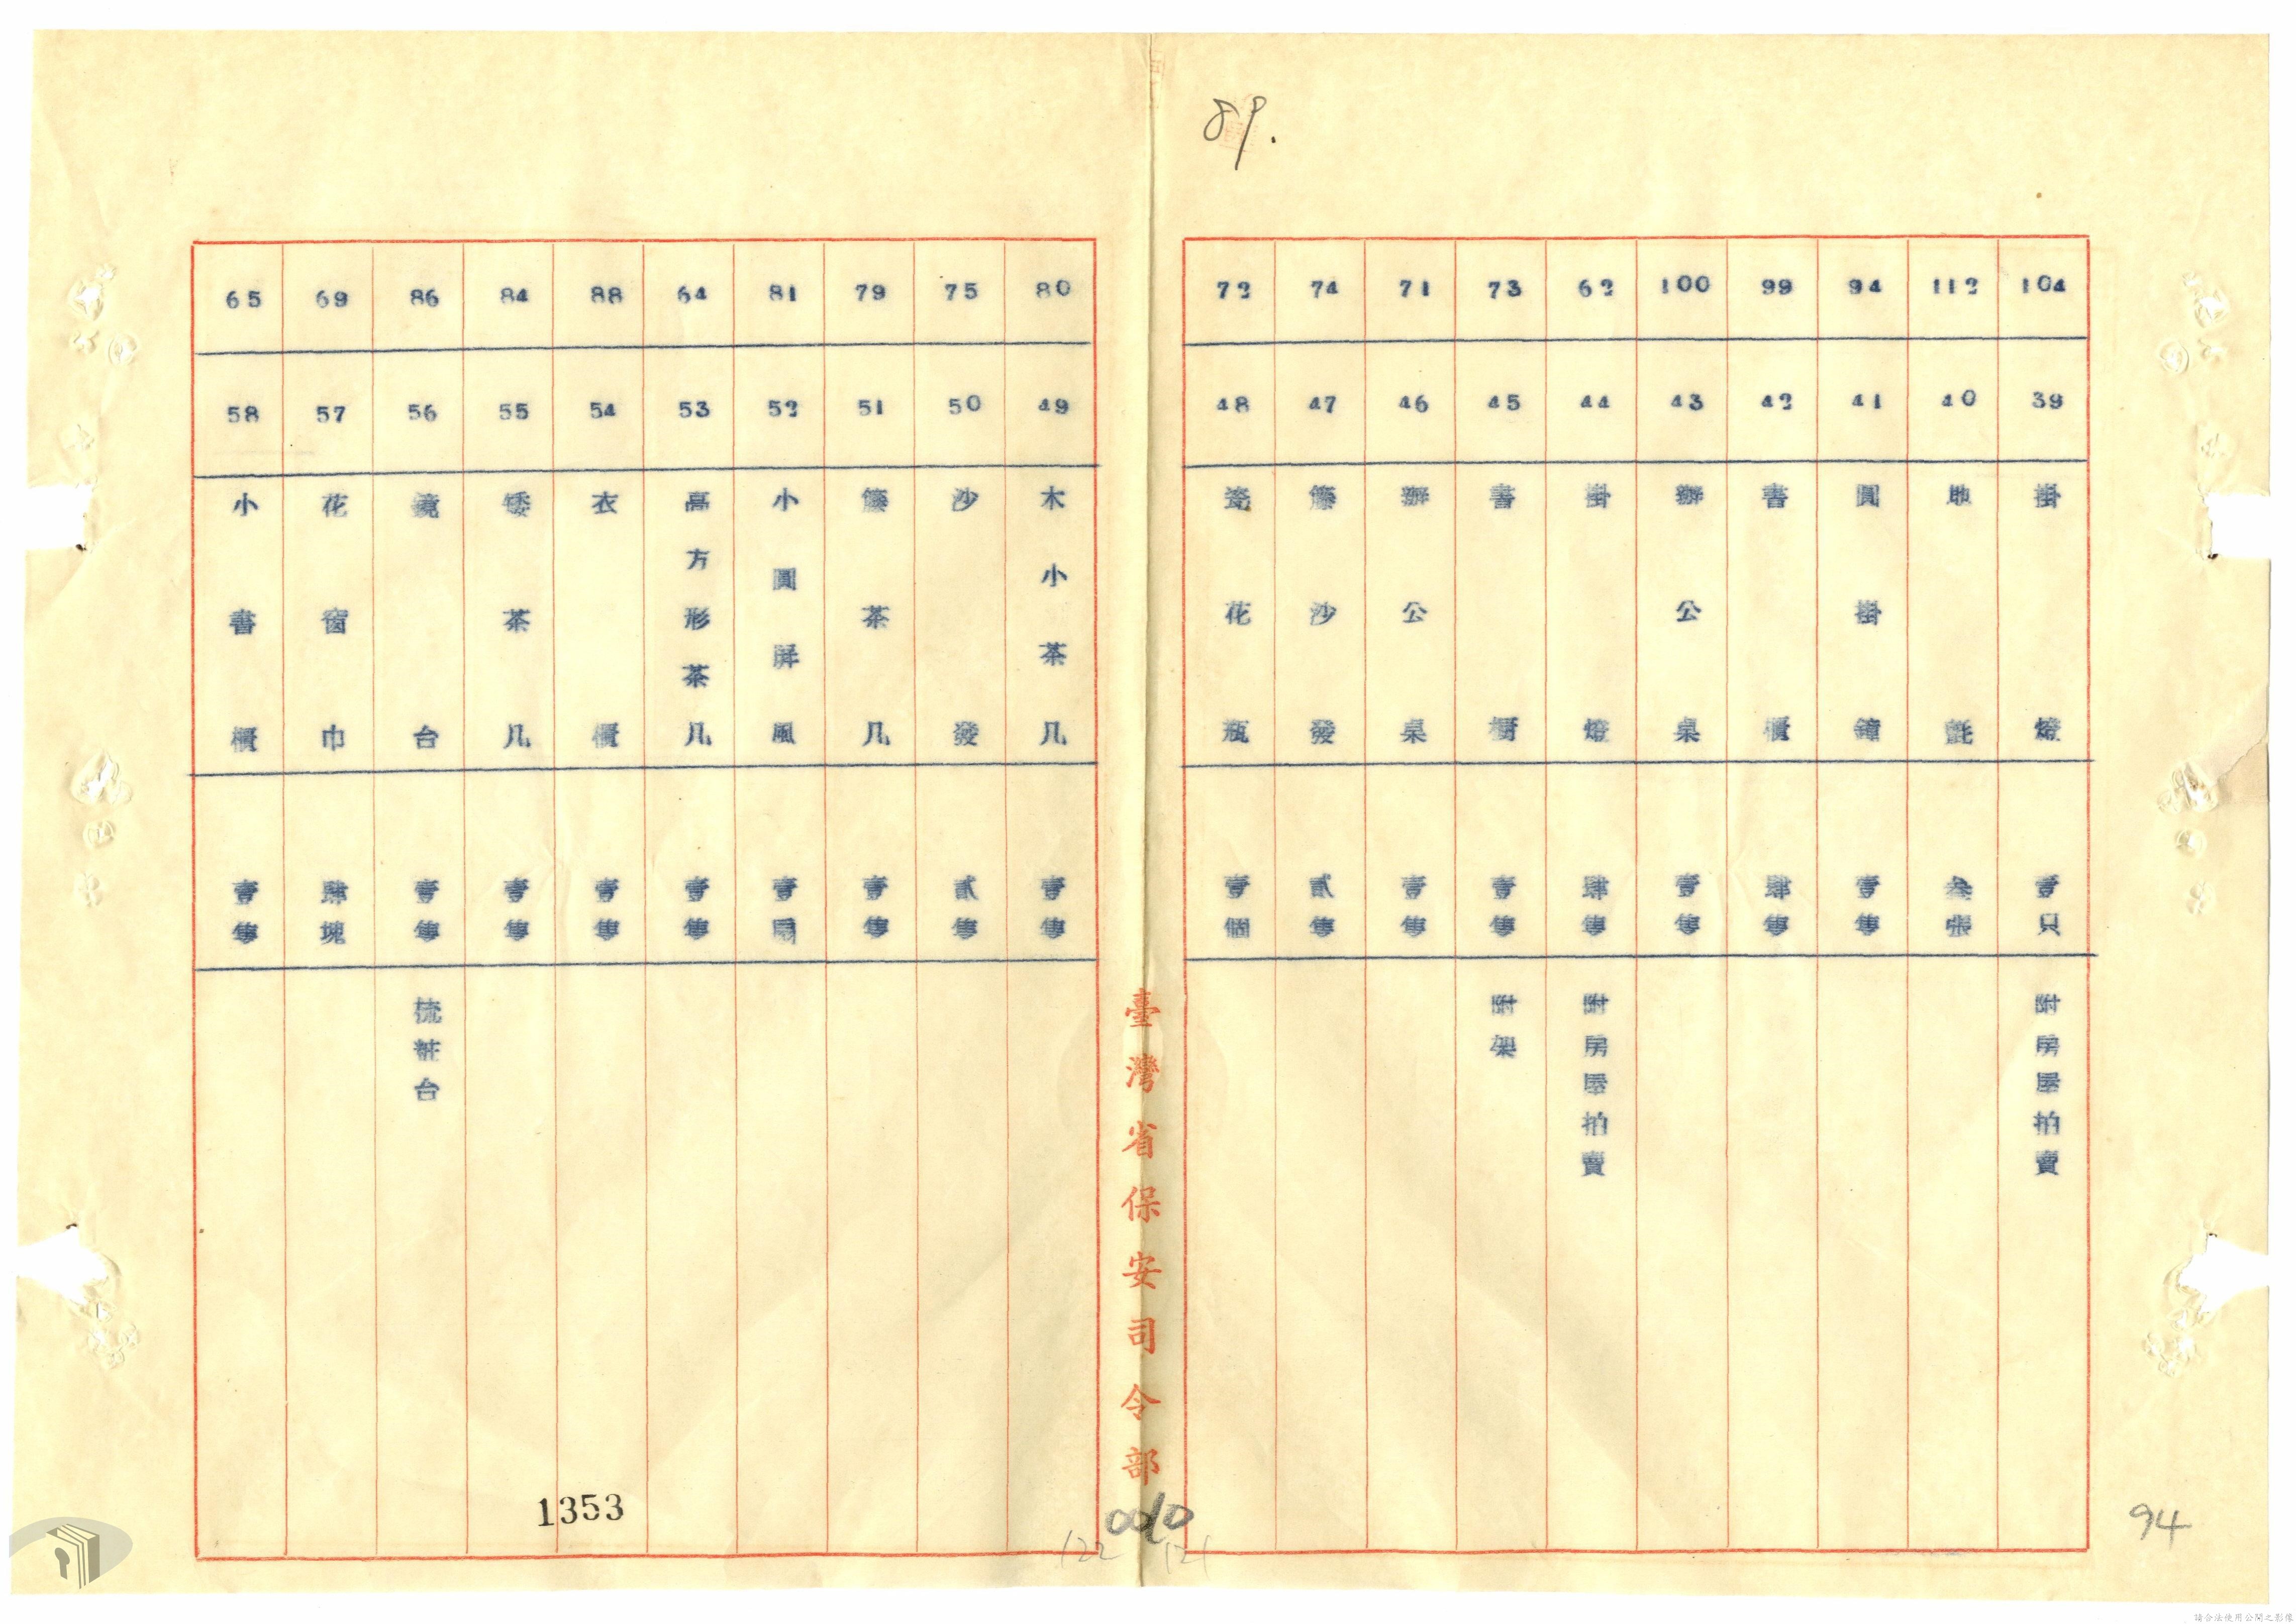 89.
104 39 掛燈 壹只 附房屋拍賣
112 40 地氈 叁張
94 41 圓掛鐘 壹隻
99 42 書櫃 肆隻
100 43 辦公桌 壹隻
62 44 掛燈 肆隻 附房屋拍賣
73 45 書櫥 壹隻 附架
71 46 辦公桌 壹隻
74 47 籐沙發 貳隻
72 48 瓷花瓶 壹個
臺灣省保安司令部
80 49 木小茶几 壹隻
75 50 沙發 貳隻
79 51 籐茶几 壹隻
81 52 小圓屏風 壹
64 53 高方形茶几 壹隻
88 54 衣櫃 壹隻
84 55 矮茶几 壹隻
86 56 鏡台 壹隻 梳粧台
69 57 花窗巾 肆塊
65 58 小書櫃 壹隻
1353
122
121
94
請合法使用公開之影像